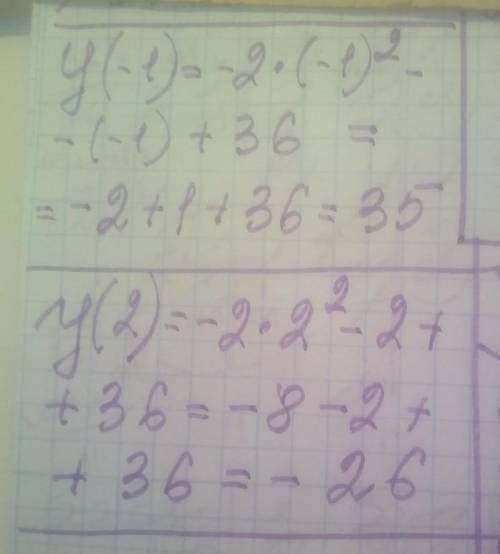 y(-1)=-2·(-1)²-
-(-1)+36 =
=-2+1+36=35
y(2)=-2·2²-2+
+36=-8-2+
+36=-26